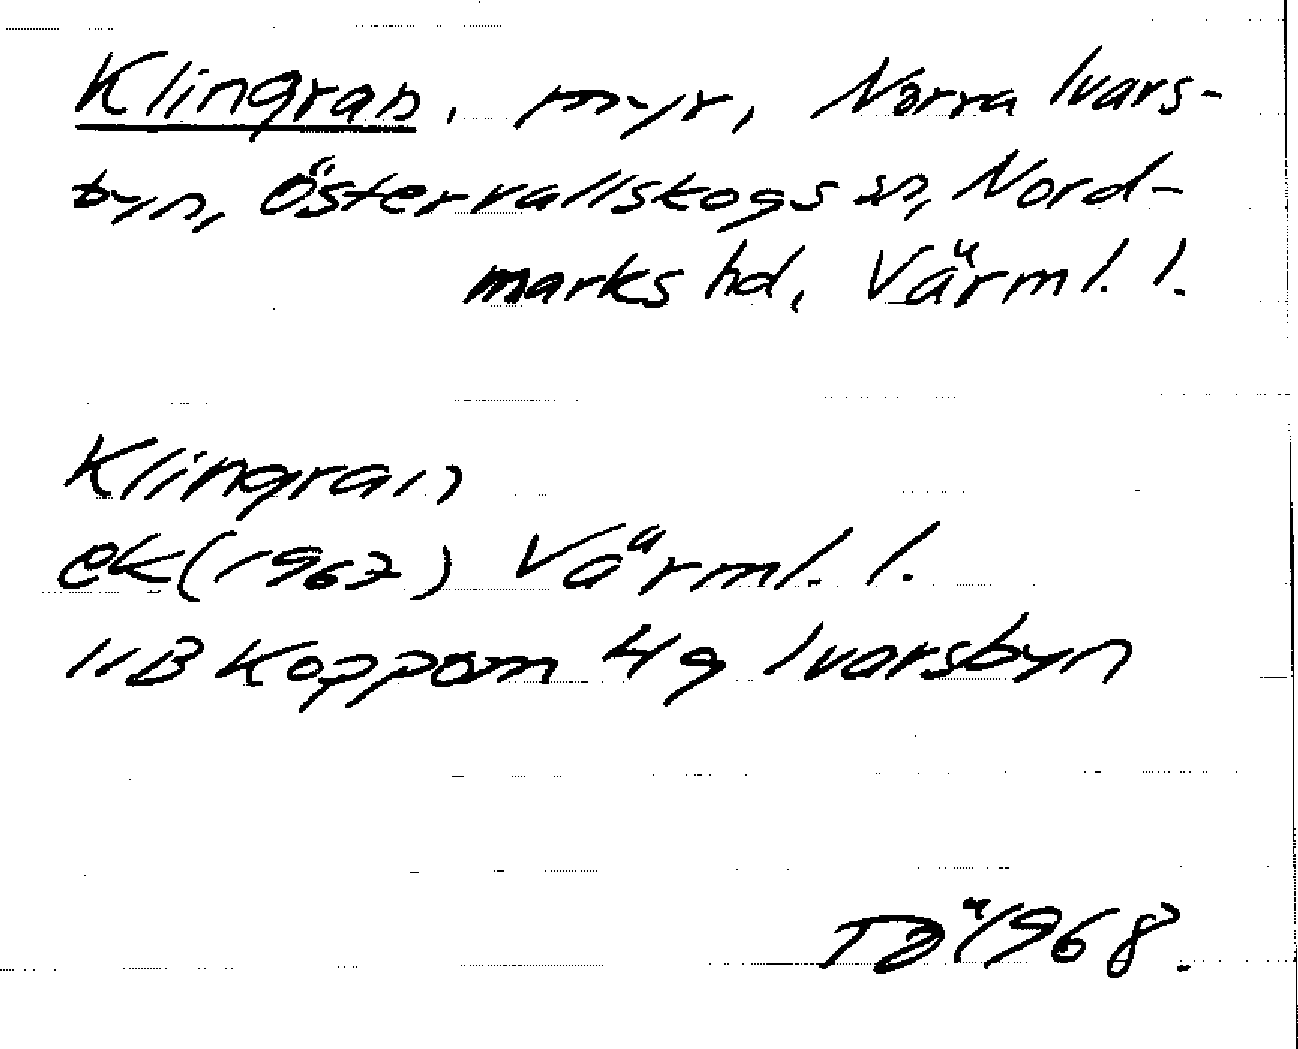 Klingran, myr, Norra Ivars-
byn, Östervallskogs sn, Nord-
marks hd, Värml. l.
Klingran
ek (1967) Värml. l.
11B Koppom 4g Ivarsbyn
1968.